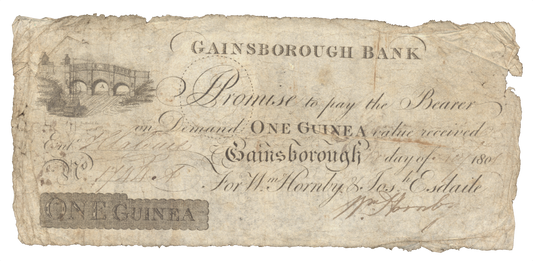 GAINSBOROUGH BANK
Promise to pay the Bearer
on Demand ONE GUINEA value received
Gainsborough day of 180
Ent.
No.
For Wm. Hornby & Josh. Esdaile
Wm Hornby
ONE GUINEA